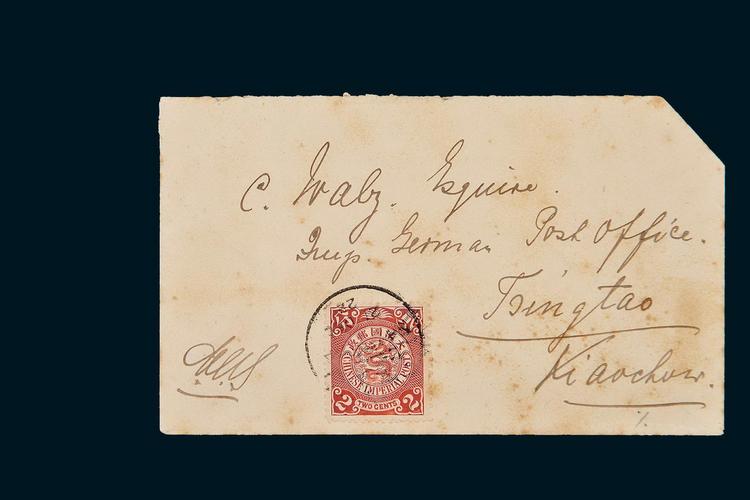 C. Walz. Esquire.
Imp. German Post Office.
Tsingtao
Kiaochow.
CHINESE IMPERIAL POST
2 TWO CENTS 2